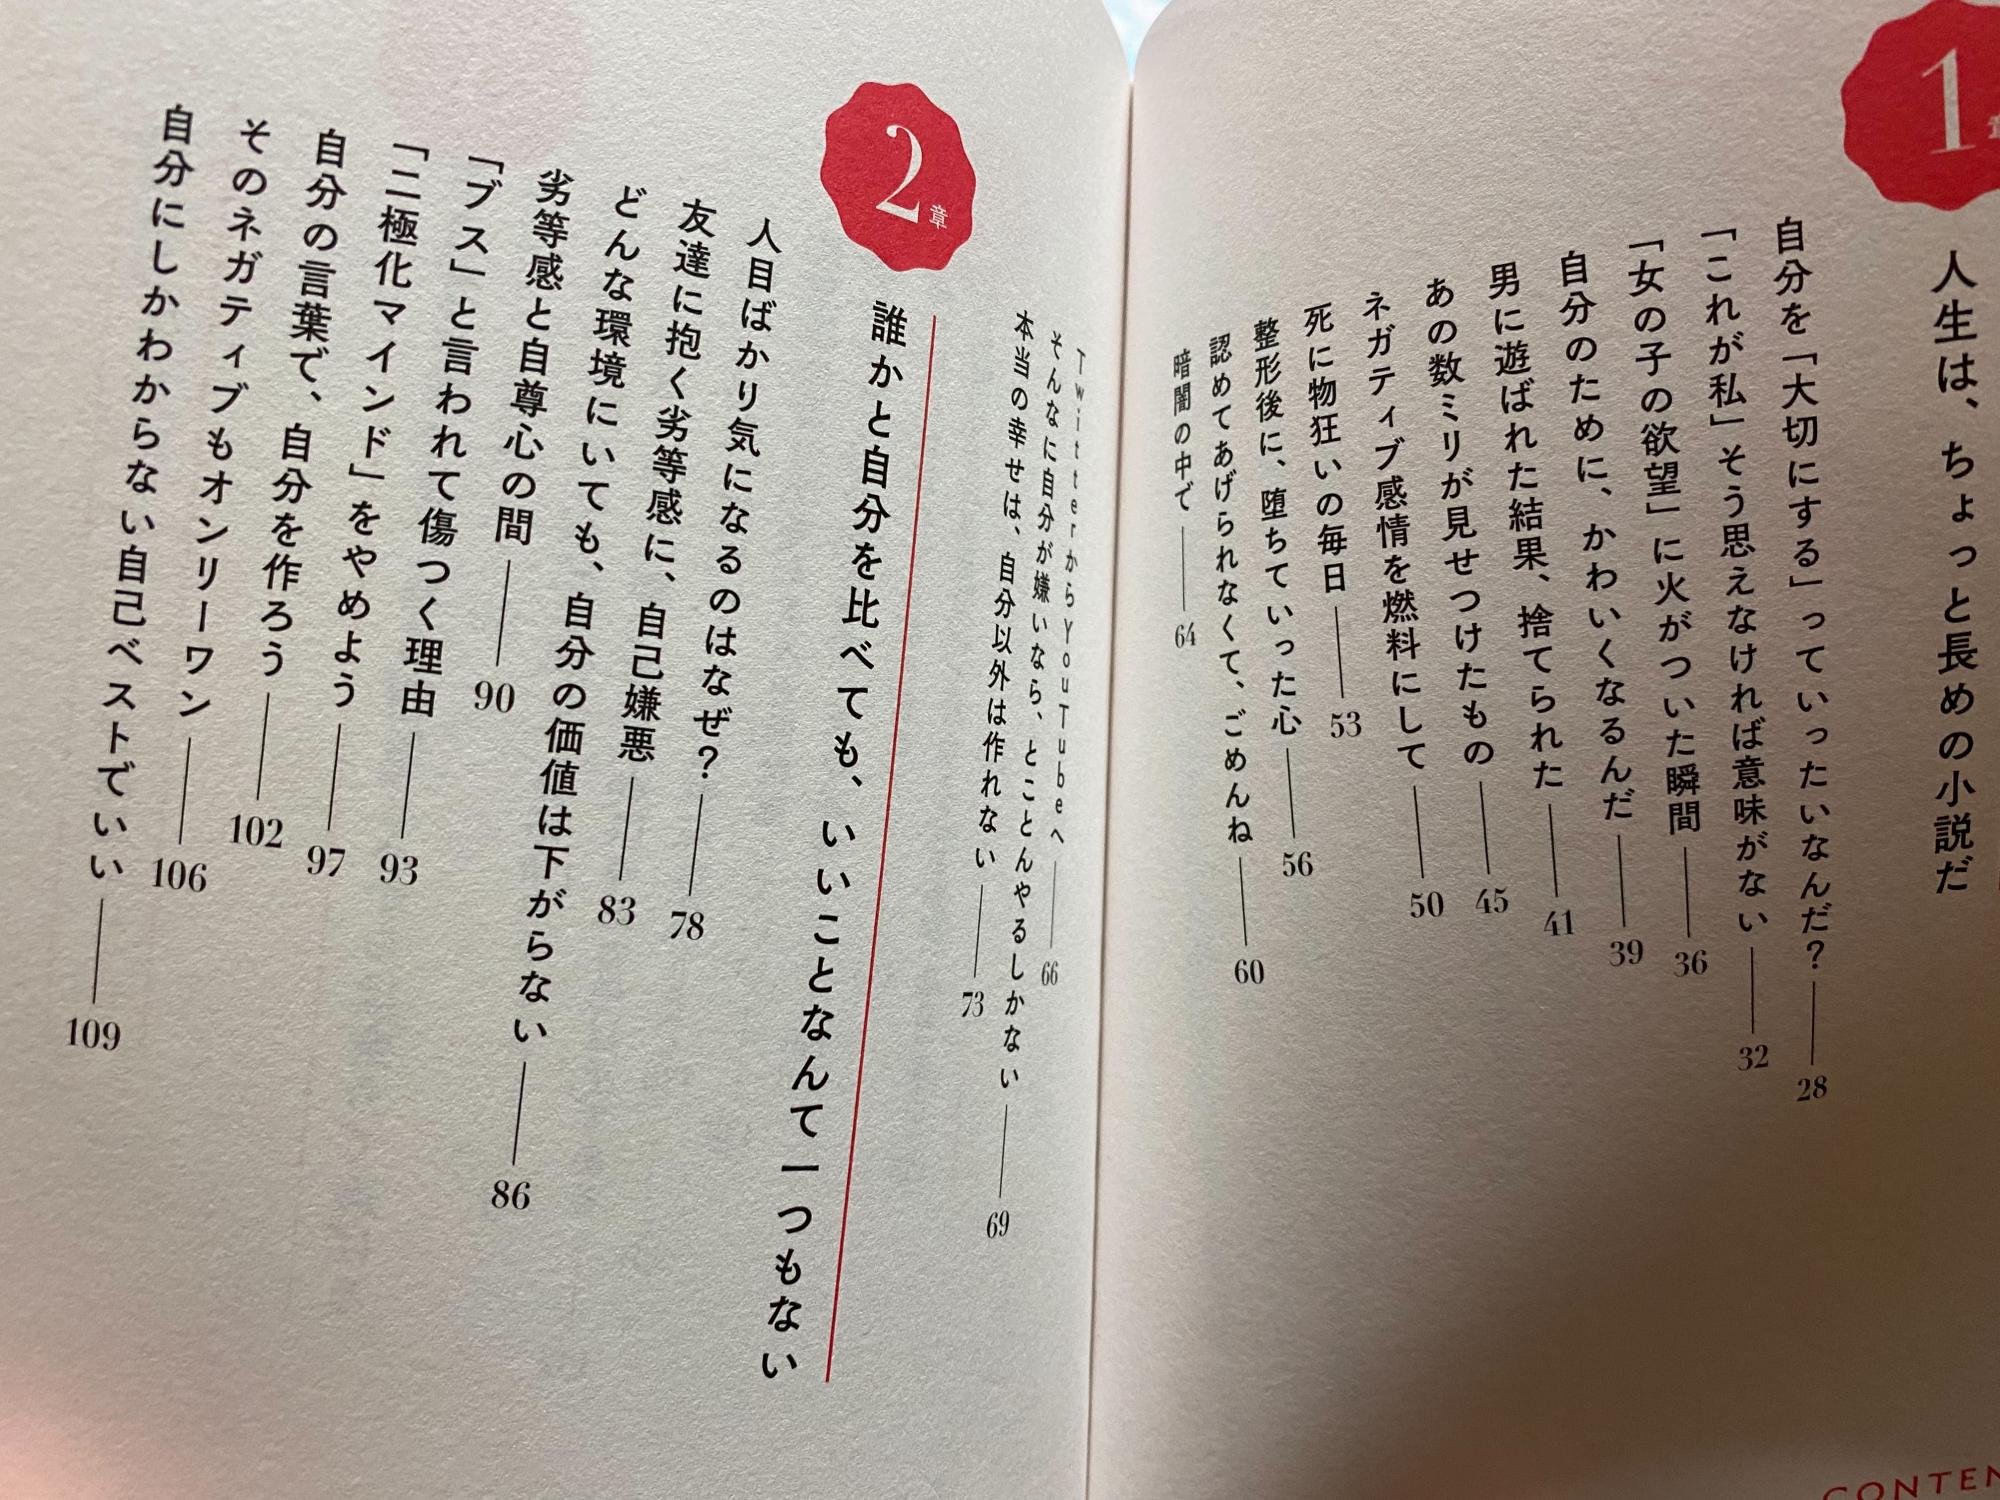 1章
人生は、ちょっと長めの小説だ
自分を「大切にする」っていったいなんだ? 28
「これが私」そう思えなければ意味がない 32
「女の子の欲望」に火がついた瞬間 36
自分のために、かわいくなるんだ 39
男に遊ばれた結果、捨てられた 41
あの数ミリが見せつけたもの 45
ネガティブ感情を燃料にして 50
死に物狂いの毎日 53
整形後に、堕ちていった心 56
認めてあげられなくて、ごめんね 60
暗闇の中で 64
TwitterからYouTubeへ 66
そんなに自分が嫌いなら、とことんやるしかない 69
本当の幸せは、自分以外は作れない 73
2章
誰かと自分を比べても、いいことなんて一つもない
人目ばかり気になるのはなぜ? 78
友達に抱く劣等感に、自己嫌悪 83
どんな環境にいても、自分の価値は下がらない 86
劣等感と自尊心の間 90
「ブス」と言われて傷つく理由 93
「二極化マインド」をやめよう 97
自分の言葉で、自分を作ろう 102
そのネガティブもオンリーワン 106
自分にしかわからない自己ベストでいい 109